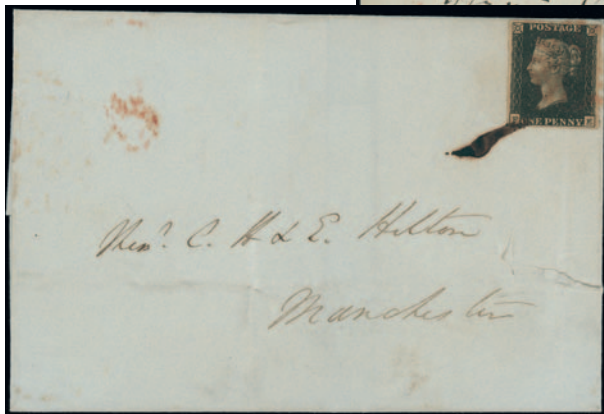 POSTAGE
ONE PENNY
C. H & E. Hilton
Manchester